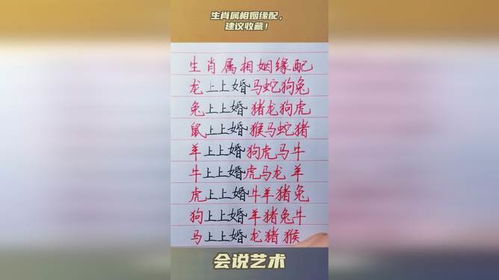 生肖属相姻缘配,
建议收藏!
生肖属相姻缘配
龙上上婚马蛇狗兔
兔上上婚猪龙狗虎
鼠上上婚猴马蛇猪
羊上上婚狗虎马牛
牛上上婚虎马龙羊
虎上上婚牛羊猪兔
狗上上婚羊猪兔牛
马上上婚龙猪猴
会说艺术